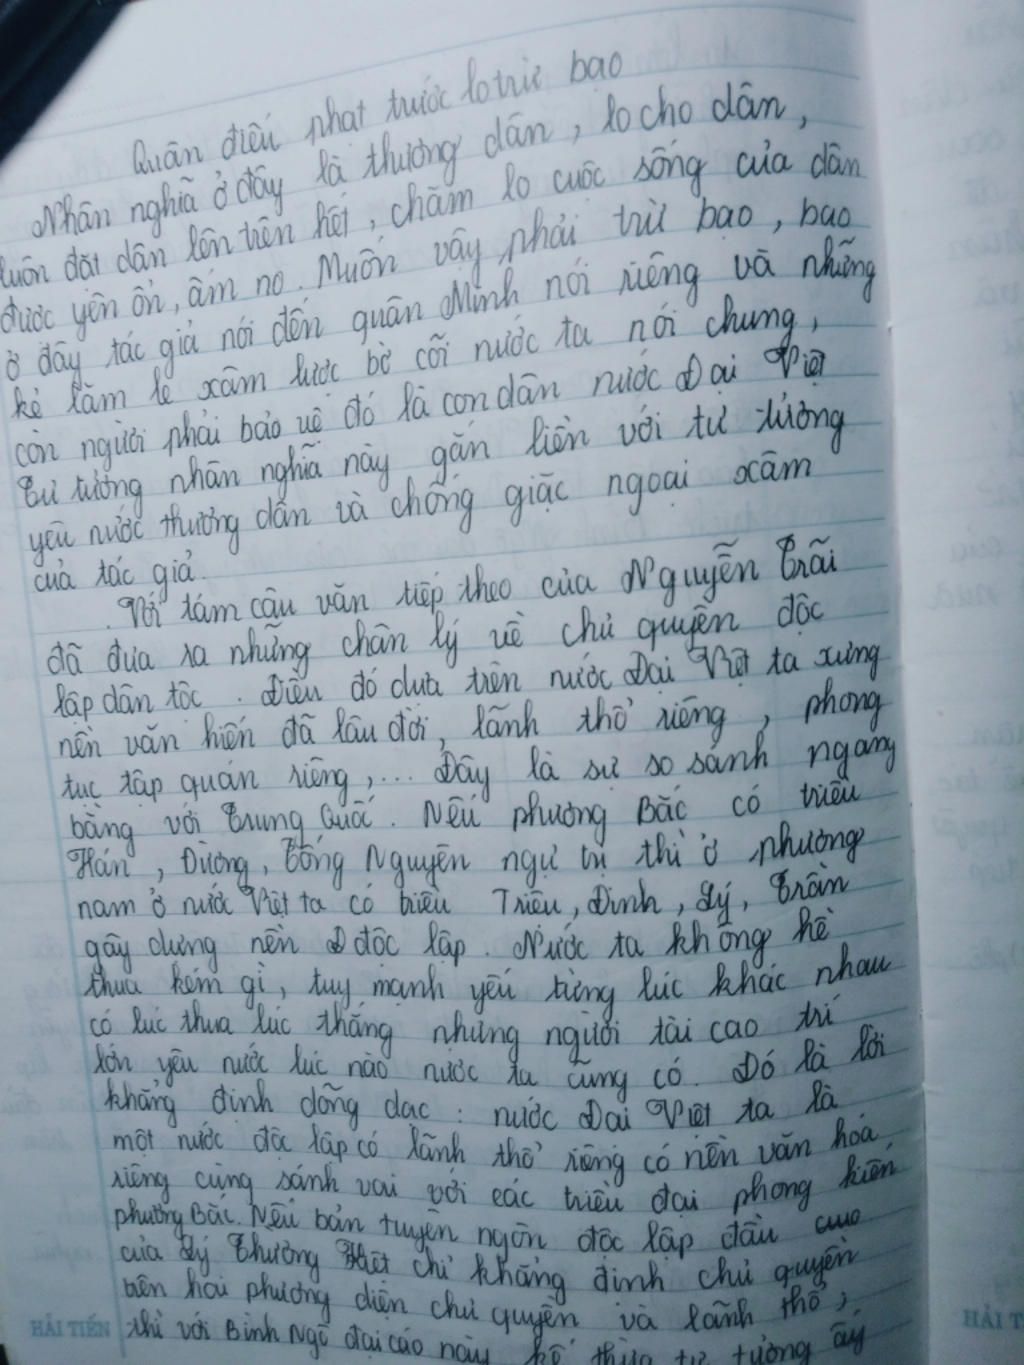 Quân điếu phạt trước lo trừ bạo
Nhân nghĩa ở đây là thương dân, lo cho dân,
luôn đặt dân lên trên hết, chăm lo cuộc sống của dân
được yên ổn, ấm no. Muốn vậy phải trừ bạo, bạo
ở đây tác giả nói đến quân Minh nói riêng và những
kẻ lăm le xâm lược bờ cõi nước ta nói chung,
còn người phải bảo vệ đó là con dân nước Đại Việt
Tư tưởng nhân nghĩa này gắn liền với tư tưởng
yêu nước thương dân và chống giặc ngoại xâm
của tác giả.
Với tám câu văn tiếp theo của Nguyễn Trãi
đã đưa ra những chân lý về chủ quyền độc
lập dân tộc. Điều đó dựa trên nước Đại Việt ta xưng
nền văn hiến đã lâu đời, lãnh thổ riêng, phong
tục tập quán riêng,... Đây là sự so sánh ngang
bằng với Trung Quốc. Nếu phương Bắc có triều
Hán, Đường, Tống Nguyên ngự trị thì ở phương
nam ở nước Việt ta có triều Triệu, Đinh, Lý, Trần
gây dựng nền độc lập. Nước ta không hề
thua kém gì, tuy mạnh yếu từng lúc khác nhau
có lúc thua lúc thắng nhưng người tài cao trí
lớn yêu nước lúc nào nước ta cũng có. Đó là lời
khẳng định dõng dạc: nước Đại Việt ta là
một nước độc lập có lãnh thổ riêng có nền văn hoá
riêng cùng sánh vai với các triều đại phong kiến
phương Bắc. Nếu bản tuyên ngôn độc lập đầu
của Lý Thường Kiệt chỉ khẳng định chủ quyền
trên hai phương diện chủ quyền và lãnh thổ,
thì với Bình Ngô đại cáo này kế thừa tư tưởng ấy
HẢI TIẾN
HẢI T